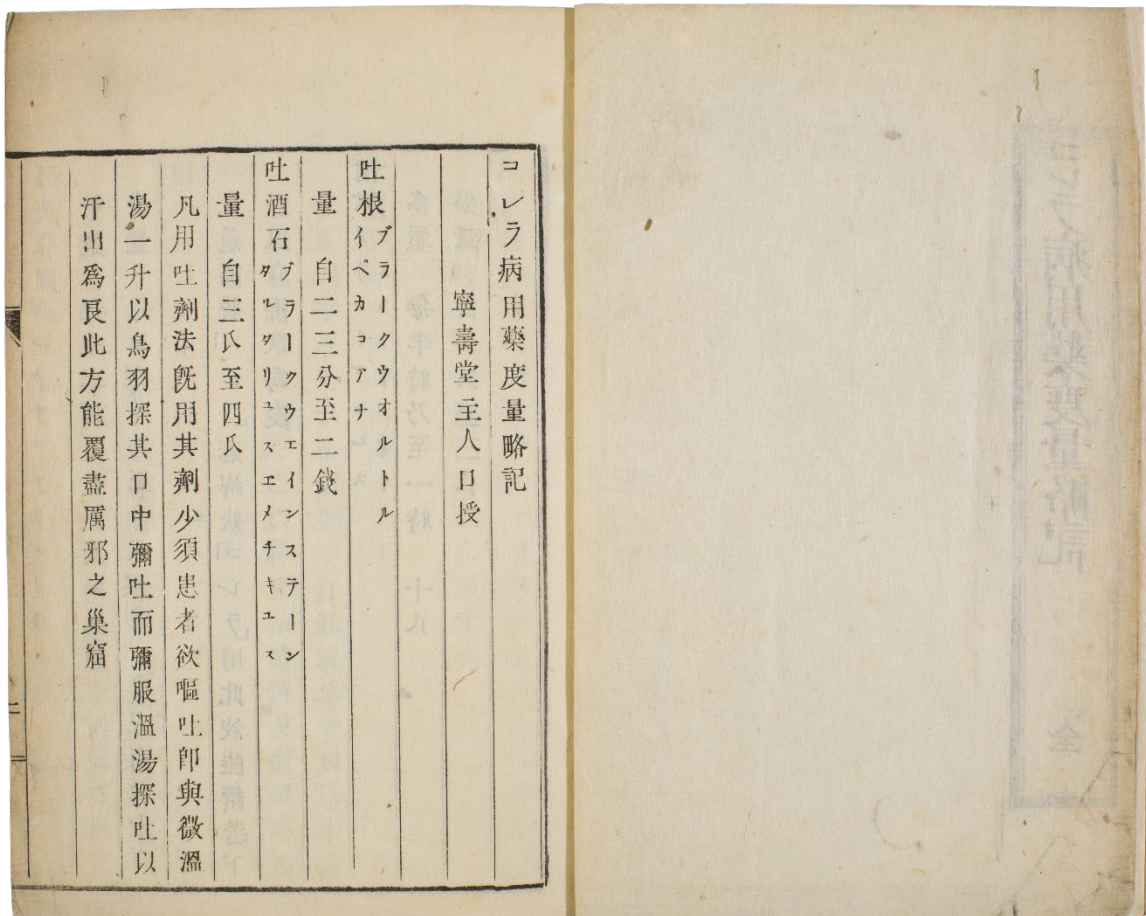 コレラ病用藥度量略記
寧壽堂主人口授
吐根 ブラークウオルトル
イペカコアナ
量 自二三分至二錢
吐酒石 ブラークウエインステーン
タルタリュスエメチキュス
量 自三氏至四氏
凡用吐劑法旣用其劑少須患者欲嘔吐卽與微溫
湯一升以鳥羽探其口中彌吐而彌服溫湯探吐以
汗出爲良此方能覆盡厲邪之巢窟